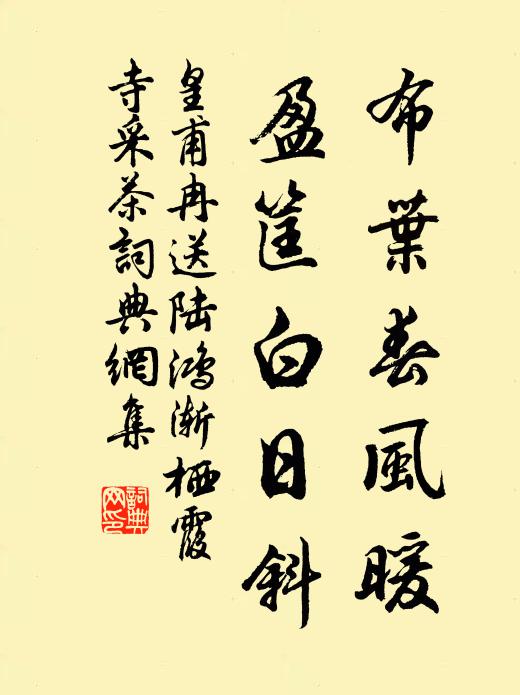 布葉春風暖
盈筐白日斜
皇甫冉送陆鸿渐栖霞
寺采茶詞典網集
詞典
网印